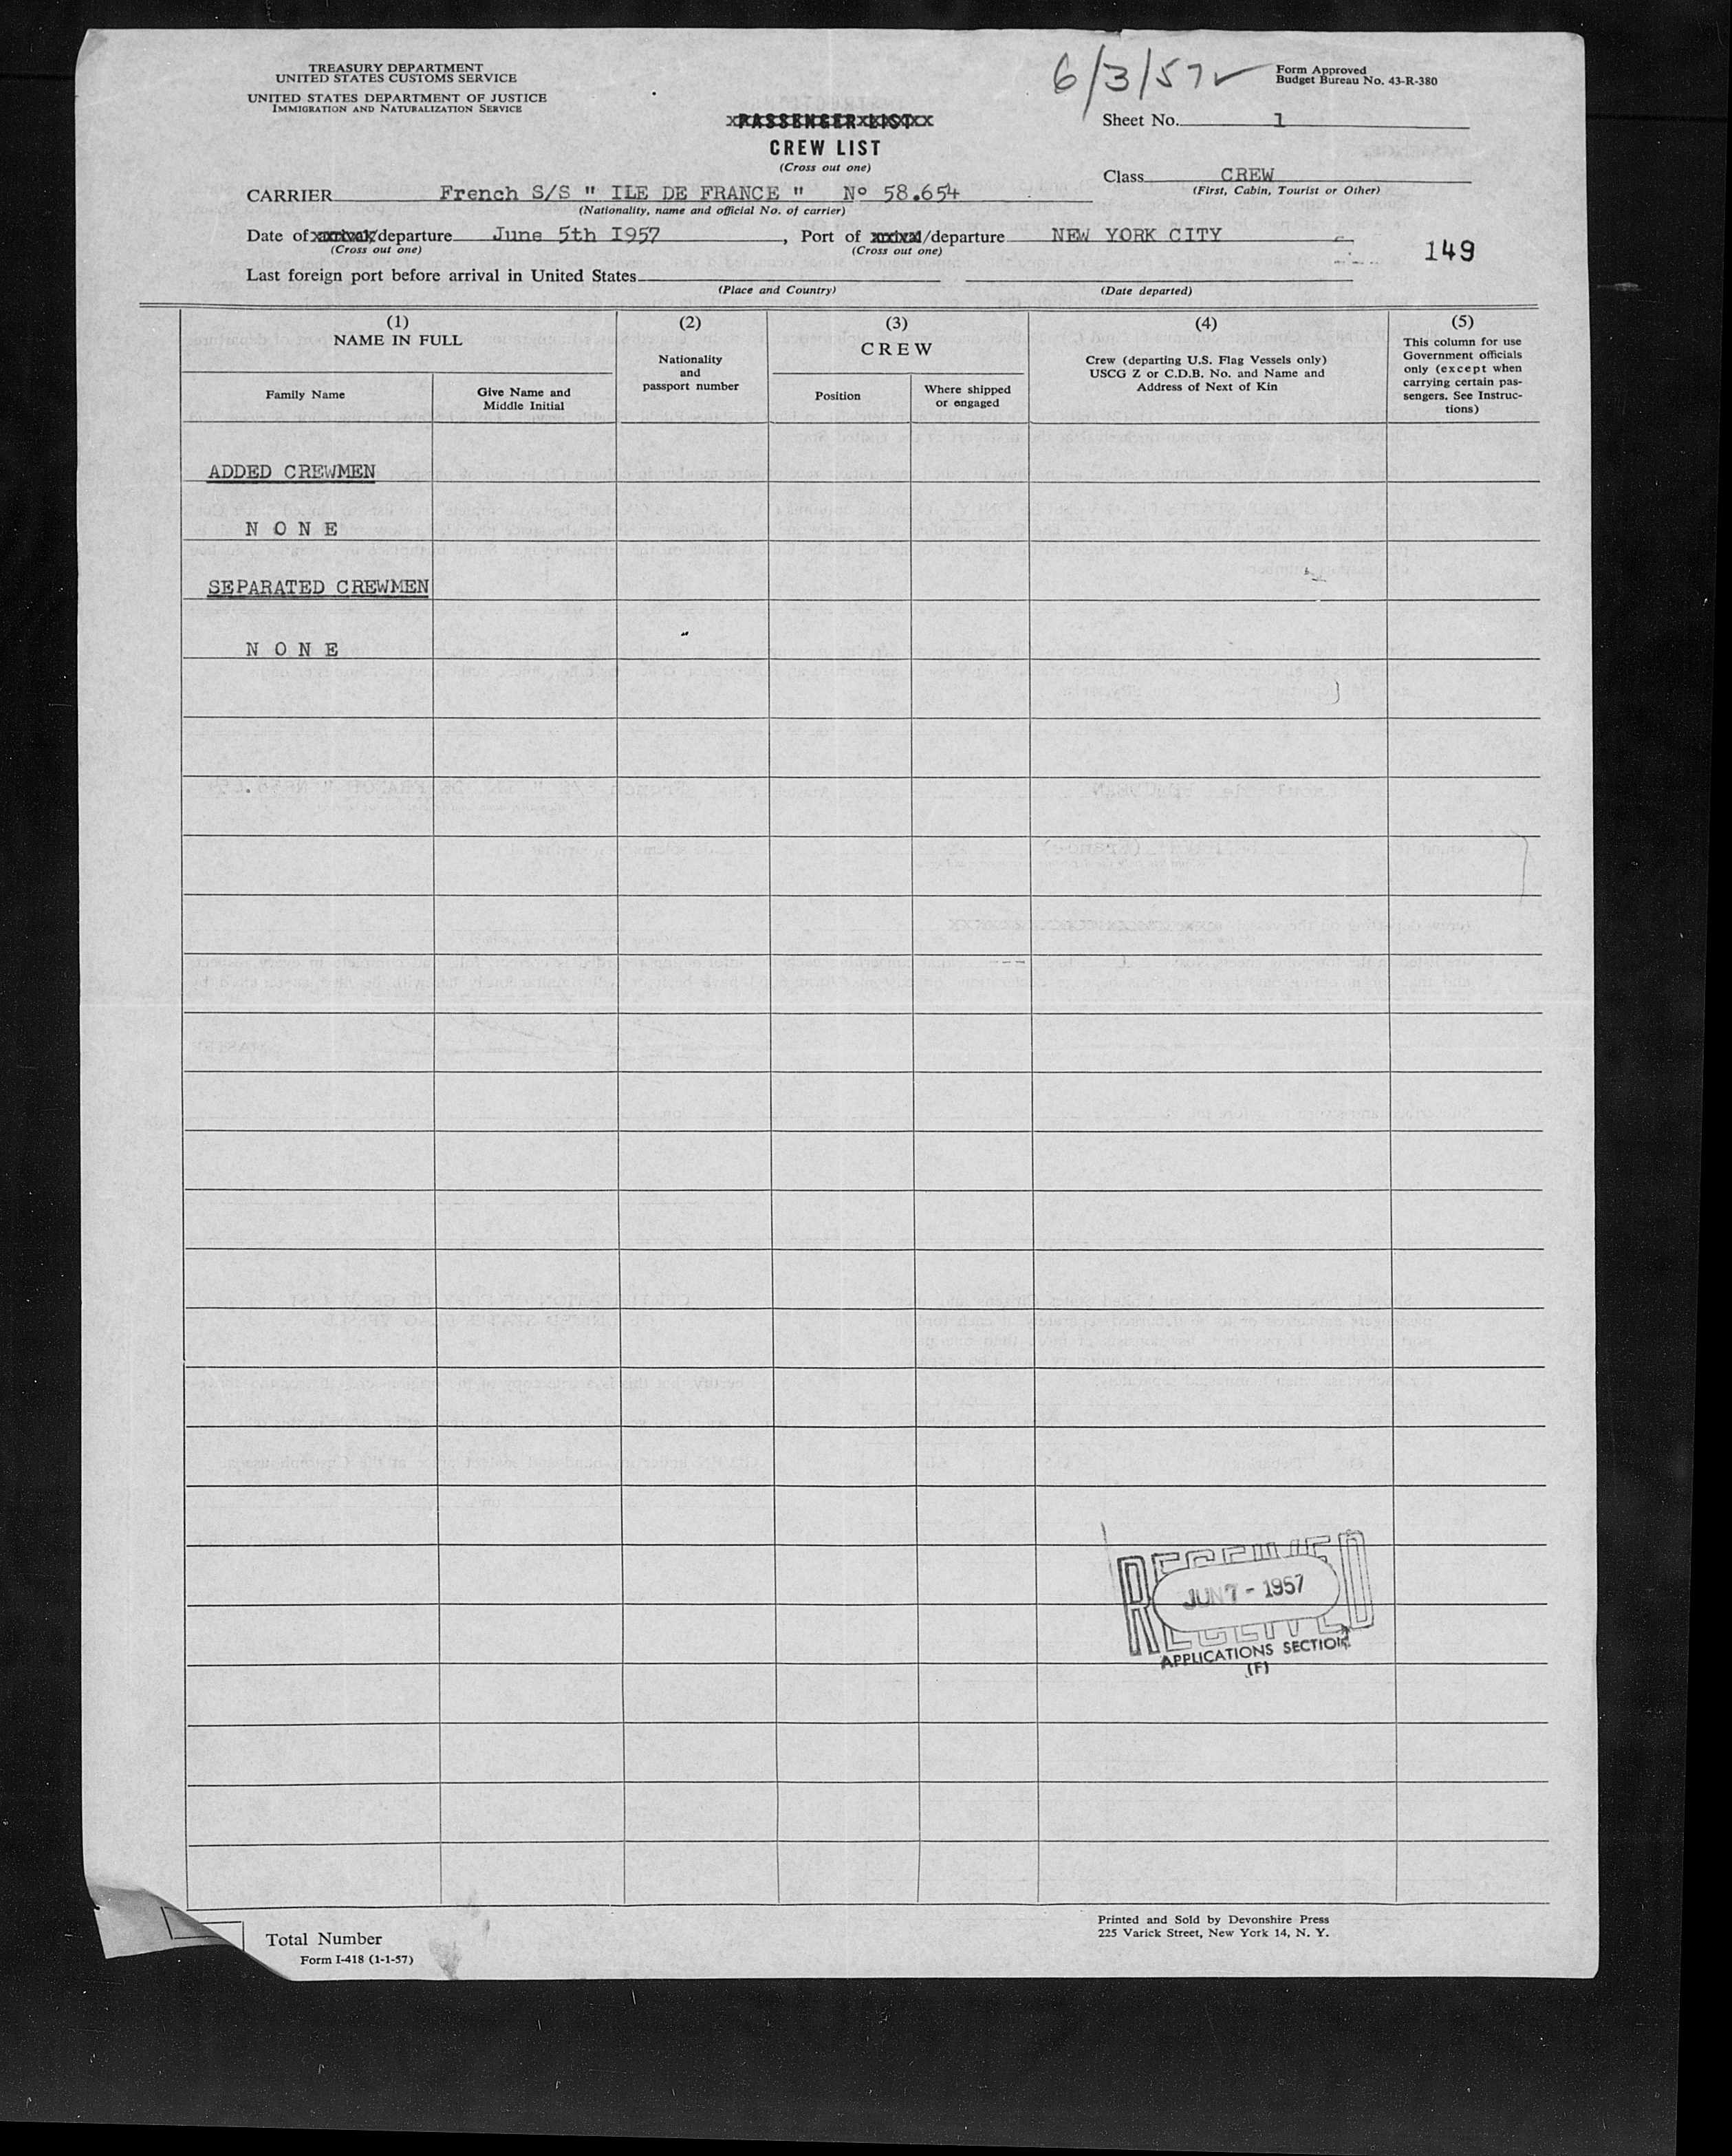 TREASURY DEPARTMENT
UNITED STATES CUSTOMS SERVICE
UNITED STATES DEPARTMENT OF JUSTICE
IMMIGRATION AND NATURALIZATION SERVICE
6/3/57 ✓
Form Approved
Budget Bureau No. 43-R-380
PASSENGER LIST
CREW LIST
(Cross out one)
Sheet No. 1
Class CREW
(First, Cabin, Tourist or Other)
CARRIER French S/S " ILE DE FRANCE " Nº 58.654
(Nationality, name and official No. of carrier)
Date of arrival/departure June 5th I957, Port of arrival/departure NEW YORK CITY
(Cross out one) (Cross out one)
149
Last foreign port before arrival in United States
(Place and Country) (Date departed)
(1) (2) (3) (4) (5)
NAME IN FULL
Family Name
Give Name and
Middle Initial
Nationality
and
passport number
CREW
Position
Where shipped
or engaged
Crew (departing U.S. Flag Vessels only)
USCG Z or C.D.B. No. and Name and
Address of Next of Kin
This column for use
Government officials
only (except when
carrying certain pas-
sengers. See Instruc-
tions)
ADDED CREWMEN
N O N E
SEPARATED CREWMEN
N O N E
RECEIVED
JUN 7 - 1957
RECEIVED
APPLICATIONS SECTION
(F)
Total Number
Form I-418 (1-1-57)
Printed and Sold by Devonshire Press
225 Varick Street, New York 14, N. Y.